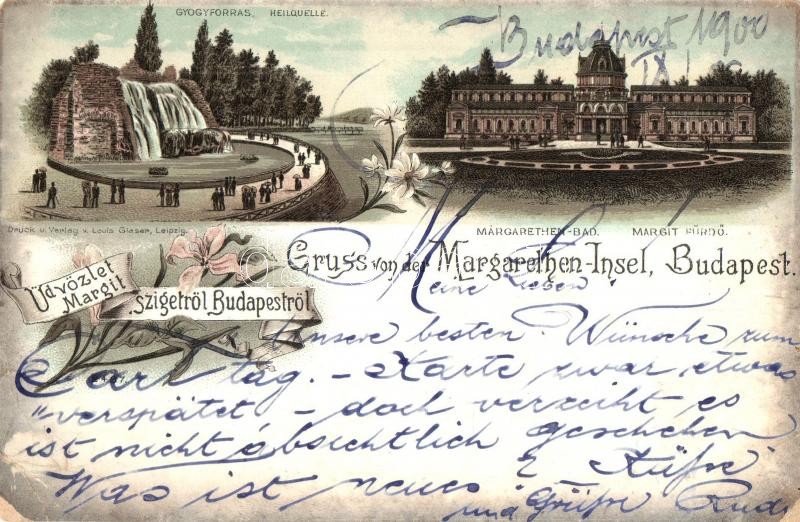 GYÓGYFORRÁS. HEILQUELLE.
Budapest 1900
IX
Druck u. Verlag v. Louis Glaser, Leipzig.
MARGARETHEN-BAD. MARGIT FÜRDŐ.
Gruss von der Margarethen-Insel, Budapest.
Üdvözlet
Margit
szigetről Budapestről
Meine Lieben
Unsere besten Wünsche zum
tag. – Karte zwar etwas
"verspätet – doch verzeiht es
ist nicht absichtlich geschehen
Was ist neues Küsse
und Grüsse Rudi